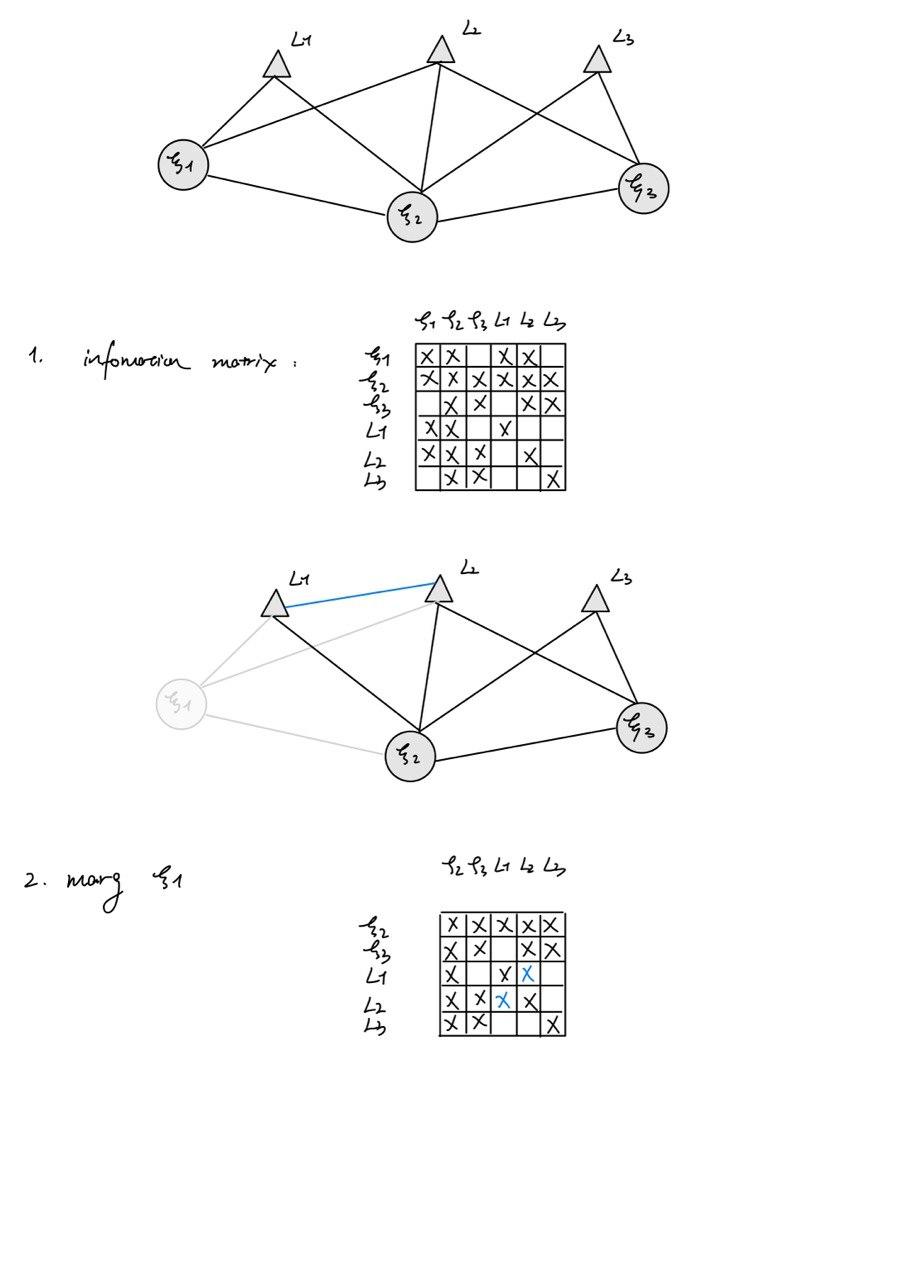 L1 L2 L3
ξ1 ξ2 ξ3
ξ1 ξ2 ξ3 L1 L2 L3
1. infomacion matrix :
ξ1 X X X X
ξ2 X X X X X X
ξ3 X X X X
L1 X X X
L2 X X X X
L3 X X X
L1 L2 L3
ξ1 ξ2 ξ3
2. marg ξ1
ξ2 ξ3 L1 L2 L3
ξ2 X X X X X
ξ3 X X X X
L1 X X X
L2 X X X X
L3 X X X